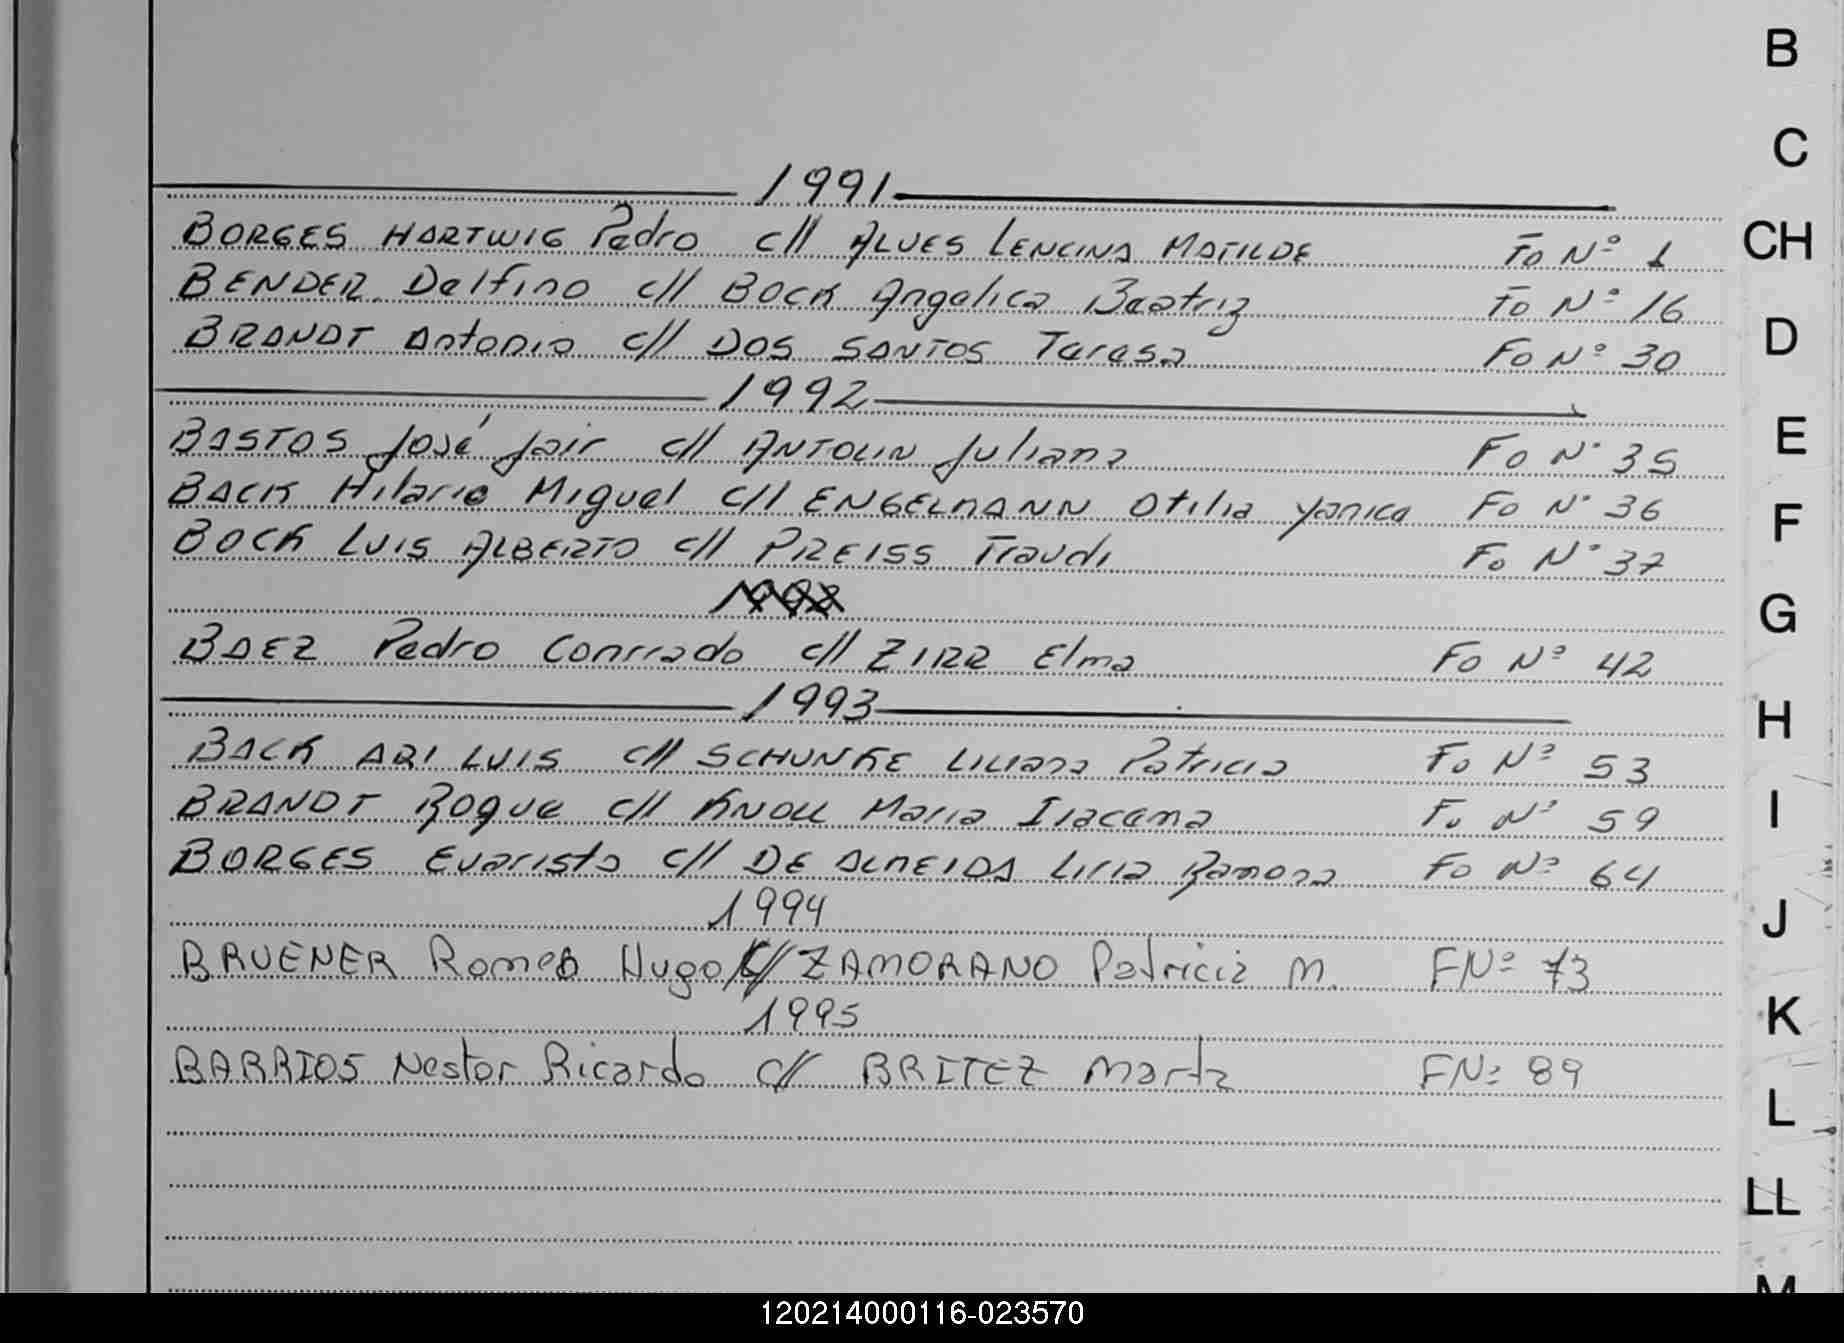 B
C
1991
BORGES HARTWIG Pedro c// ALVES LENCINA MATILDE Fo Nº 1
CH
BENDER Delfino c// BOCK Angelica Beatriz Fo Nº 16
D
BRANDT Antonio c// DOS SANTOS Teresa Fo Nº 30
1992
E
BASTOS José Jair c// ANTOLIN Juliana Fo Nº 35
BACK Hilario Miguel c// ENGELMANN Otilia Yanica Fo Nº 36
F
BOCK LUIS ALBERTO c// PREISS Traudi Fo Nº 37
G
BAEZ Pedro Conrrado c// ZIRR Elma Fo Nº 42
1993
H
BACK ARI LUIS c// SCHUNKE LILIANA Patricia Fo Nº 53
BRANDT Roque c// KNOLL Maria Iracema Fo Nº 59
I
BORGES Evaristo c// DE ALMEIDA Liria Ramona Fo Nº 64
1994
J
BRUENER Romeo Hugo c// ZAMORANO Patricia M. FNº 73
1995
K
BARRIOS Nestor Ricardo c// BRITEZ Marta FNº 89
L
LL
M
120214000116-023570